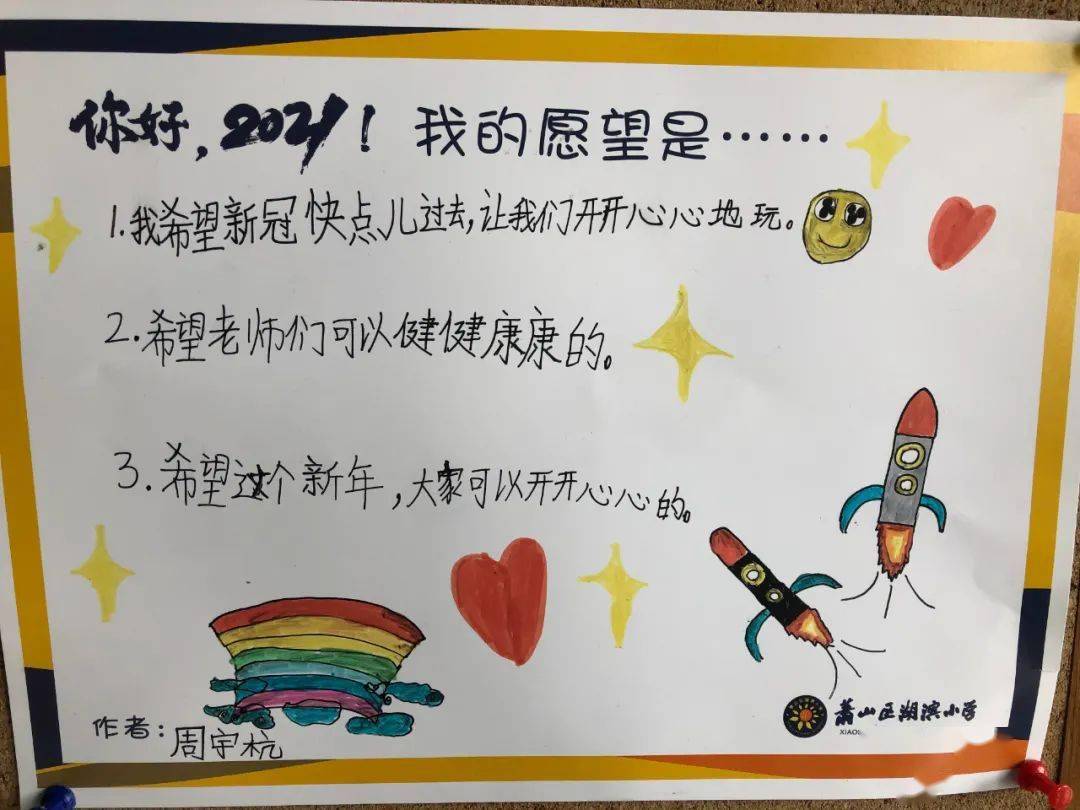 你好，2021！我的愿望是……
1.我希望新冠快点儿过去，让我们开开心心地玩。
2.希望老师们可以健健康康的。
3.希望这个新年，大家可以开开心心的。
作者：周宇杭
萧山区湖滨小学